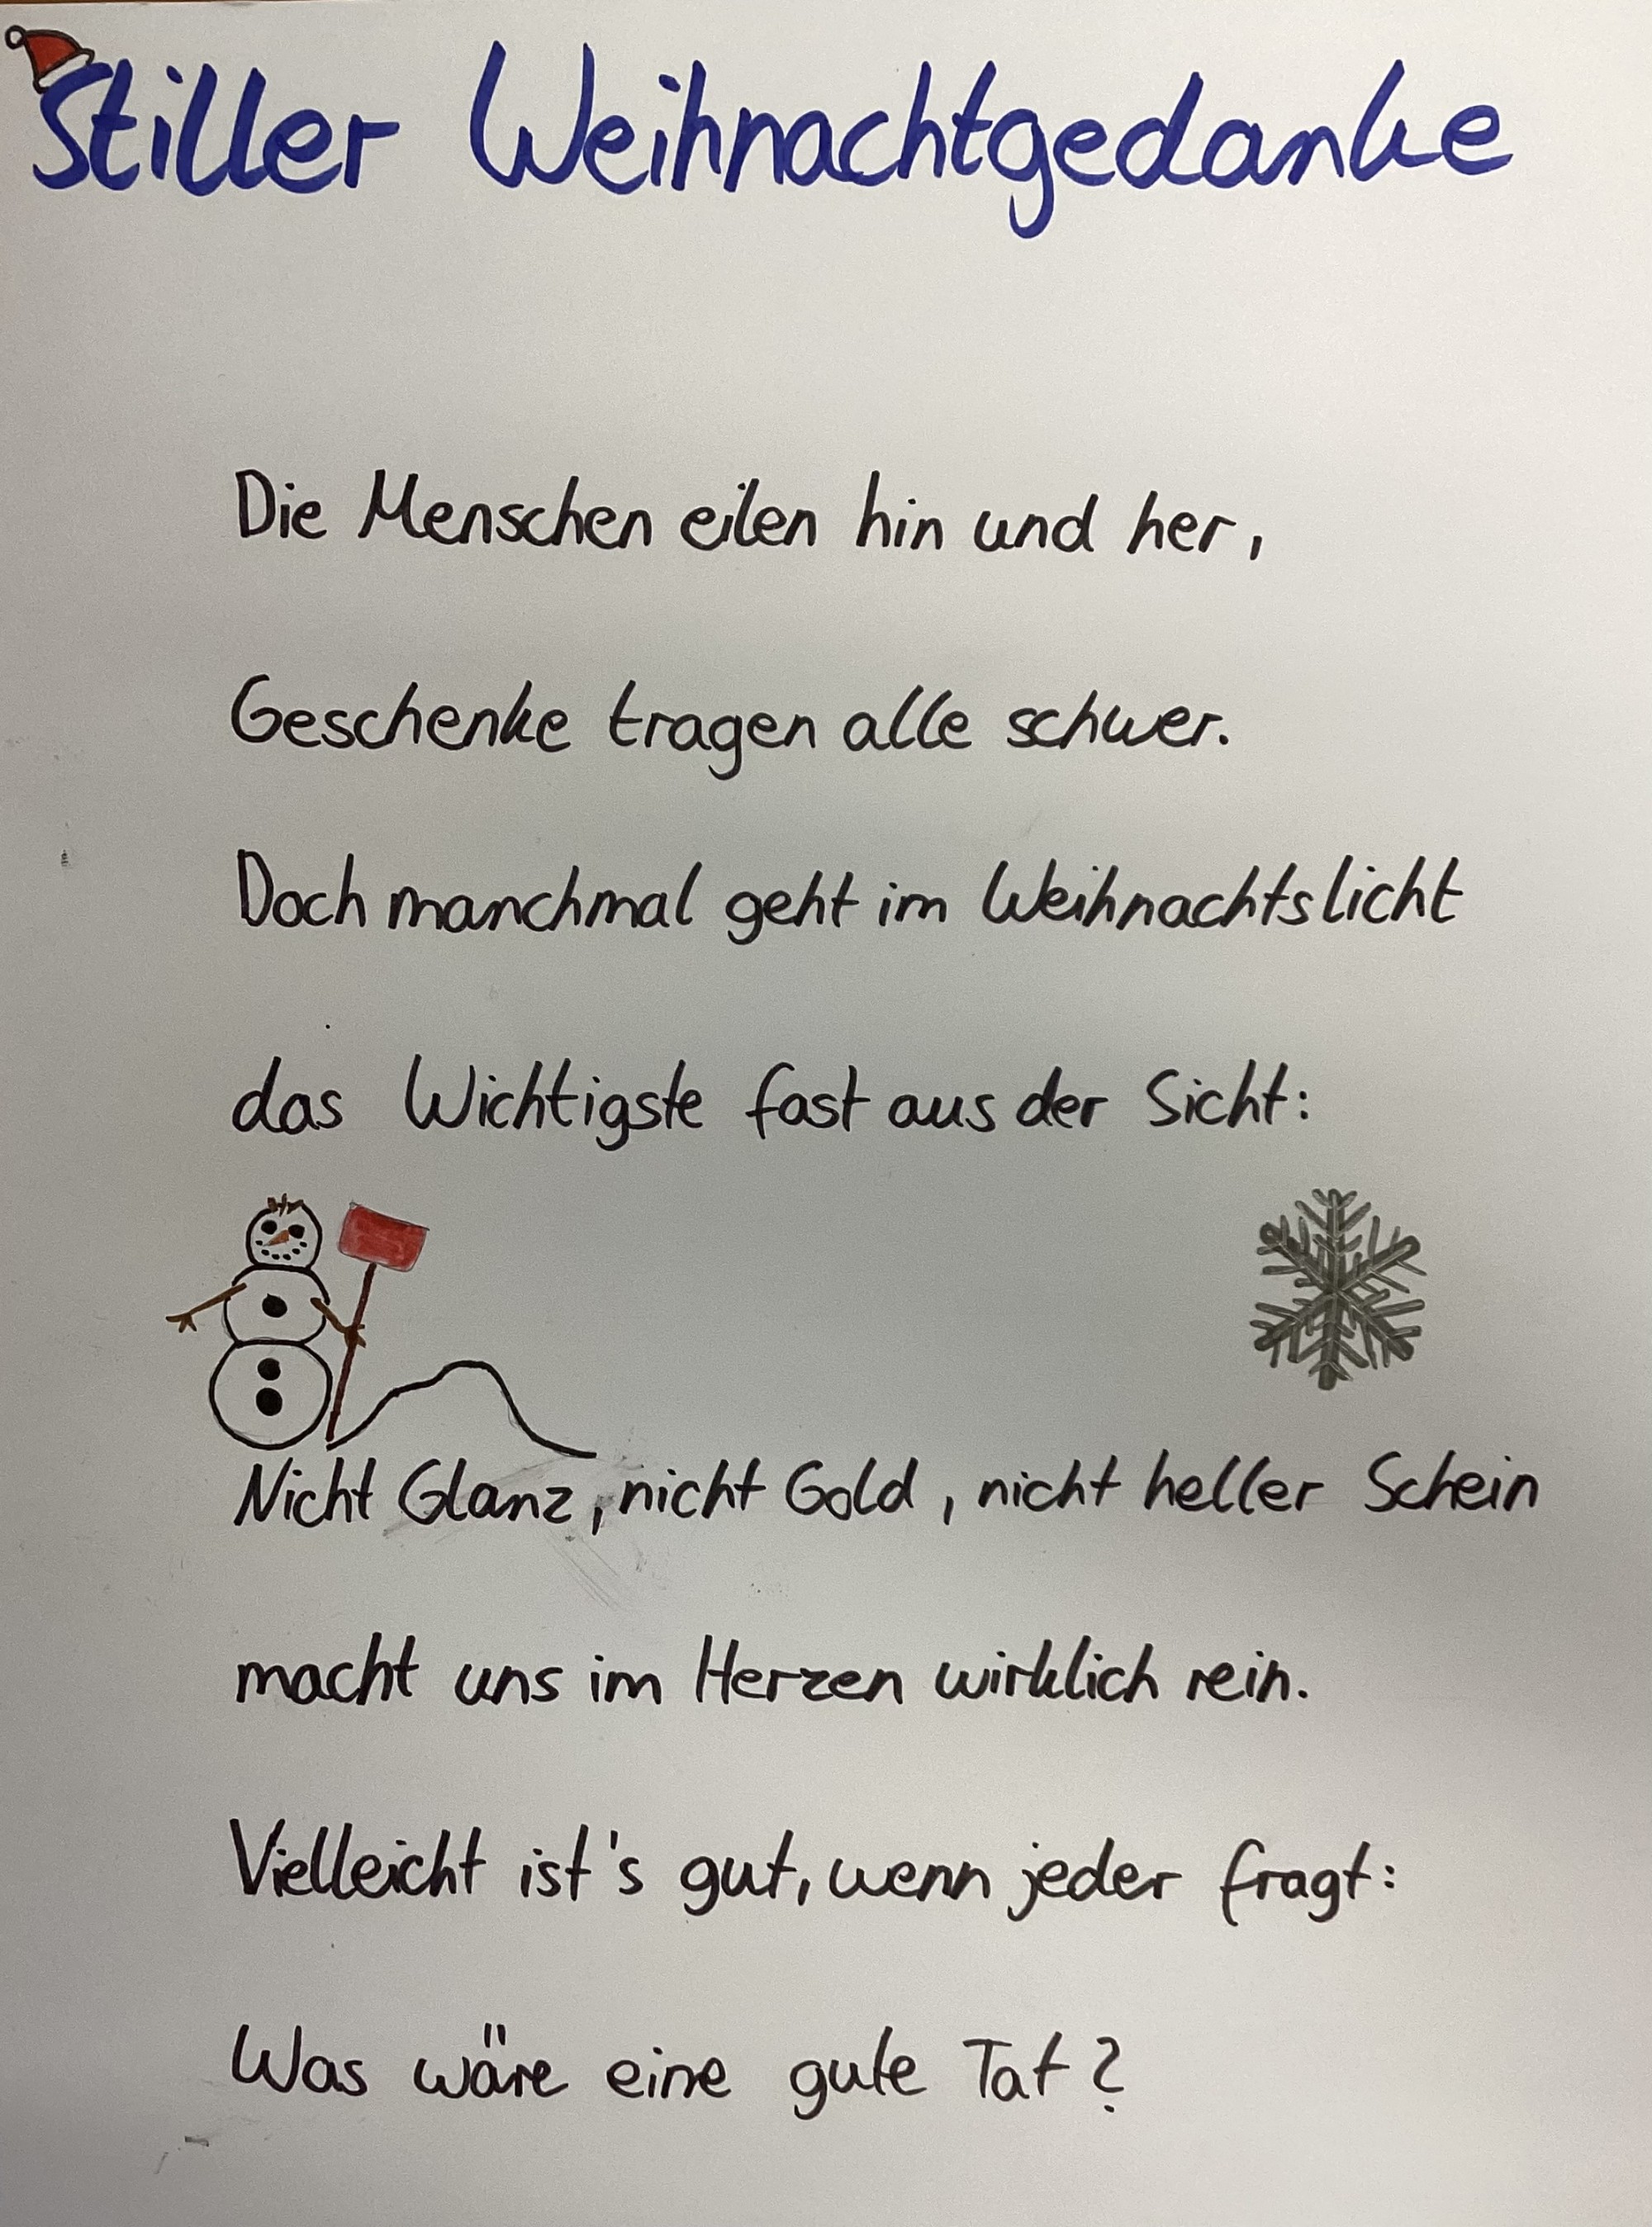 Stiller Weihnachtgedanke
Die Menschen eilen hin und her,
Geschenke tragen alle schwer.
Doch manchmal geht im Weihnachtslicht
das Wichtigste fast aus der Sicht:
Nicht Glanz, nicht Gold, nicht heller Schein
macht uns im Herzen wirklich rein.
Vielleicht ist's gut, wenn jeder fragt:
Was wäre eine gute Tat?